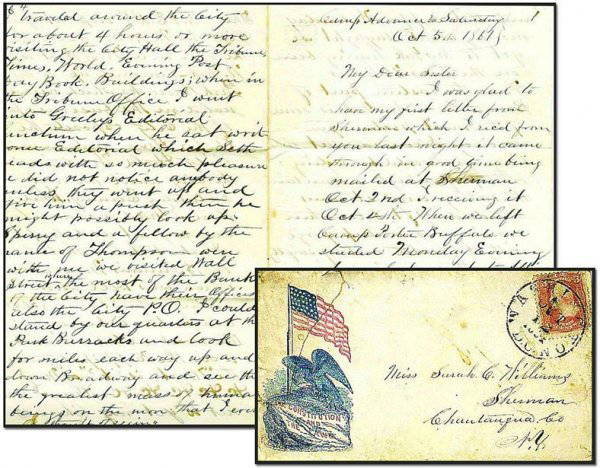 64
traveled around the City
for about 4 hours or more
visiting the City Hall the Tribune,
Times, World, Evening Post
Day Book, Buildings; when in
the Tribune Office I went
into Greeleys Editorial
sanctum when he sat writ
one Editorial which Seth
reads with so much pleasure
e did not notice anybody
unless they went up and
give him a push then he
might possibly look up.
Spring and a fellow by the
name of Thompson were
with me we visited Wall
Street where the most of the Bank
of the City have their Offices
also the City P.O. I could
stand by our quarters at the
Park Burracks and look
for miles each way up and
down Broadway and see th
the greatest mass of human
beings on the move that I ever
Camp Advance Saturday
Oct 5th 1861
My Dear Sister
I was glad to
have my first letter from
Sherman which I recd from
you last night it came
through in good time being
mailed at Sherman
Oct 2nd I receiving it
Oct 4th. When we left
Camp Porter Buffalo we
started Monday Evening
THE CONSTITUTION
AND
THE LAWS
WASH
Miss Sarah C. Williams
Sherman
Chautauqua Co
N.Y.